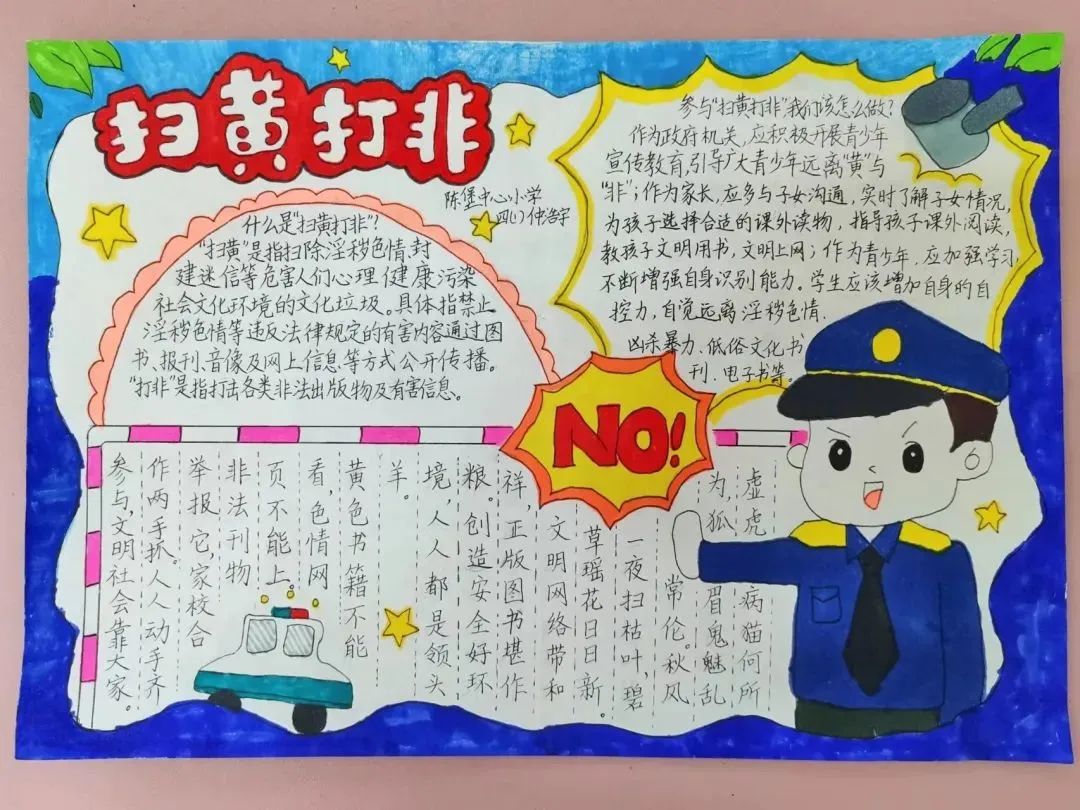 扫黄打非
陈堡中心小学
四(1)仲浩宇
什么是“扫黄打非”?
“扫黄”是指扫除淫秽色情、封
建迷信等危害人们心理健康污染
社会文化环境的文化垃圾。具体指禁止
淫秽色情等违反法律规定的有害内容通过图
书、报刊、音像及网上信息等方式公开传播。
“打非”是指打击各类非法出版物及有害信息。
参与“扫黄打非”我们该怎么做?
作为政府机关,应积极开展青少年
宣传教育,引导广大青少年远离“黄”与
“非”;作为家长,应多与子女沟通,实时了解子女情况,
为孩子选择合适的课外读物,指导孩子课外阅读,
教孩子文明用书,文明上网;作为青少年,应加强学习,
不断增强自身识别能力。学生应该增加自身的自
控力,自觉远离淫秽色情.
凶杀暴力、低俗文化书
刊、电子书等。
NO!
虚虎病猫何所
为,狐眉鬼魅乱
常伦。秋风
一夜扫枯叶,碧
草瑶花日日新。
文明网络带和
祥,正版图书堪作
粮。创造安全好环
境,人人都是领头
羊。
黄色书籍不能
看,色情网
页不能上。
非法刊物
举报它,家校合
作两手抓。人人动手齐
参与,文明社会靠大家。